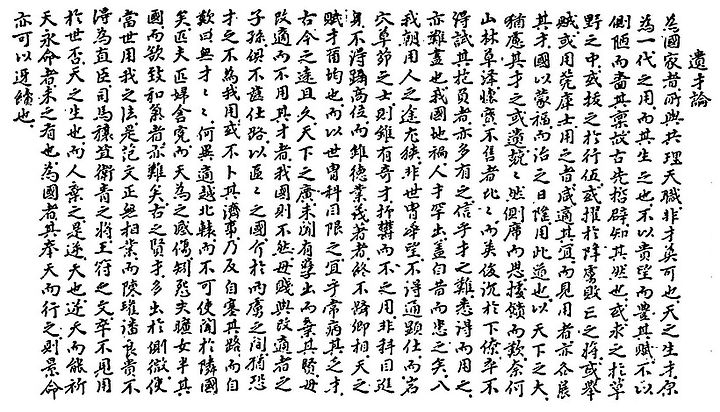 遺才論
為國家者所與共理天職非才莫可也天之生才原
為一代之用而其生之也不以貴望而豊其賦不以
側陋而嗇其稟故古先哲辟知其然也或求之於草
野之中或拔之於行伍或擢於降虜敗亡之將或舉
賊或用莞庫士用之者咸適其宜而見用者亦各展
其才國以蒙福而治之日隆用此道也以天下之大
猶慮其才之或遺兢〻然側席而思據饋而歎奈何
山林草澤懷寶不售者比〻而英俊沉於下僚卒不
得試其抱負者亦多有之信乎才之難悉得而用之
亦難盡也我國地褊人才罕出盖自昔而患之矣入
我朝用人之途尤狹非世胄華望不得通顯仕而岩
穴草茆之士則雖有奇才抑欝而不之用非科目進
身不得躡高位而雖德業茂著者終不躋卿相天之
賦才爾均也而以世胄科目限之宜乎常病其乏才
古今之遠且久天下之廣未聞有孽出而棄其賢母
改適而不用其才者我國則不然母賤與改適者之
子孫俱不齒仕路以區〻之國介於兩虜之間猶恐
才之不為我用或不卜其濟事乃反自塞其路而自
歎曰無才〻〻何異適越北轅而不可使聞於隣國
矣匹夫匹婦含冤而天為之感傷矧怨夫曠女半其
國而欲致和氣者亦難矣古之賢才多出於側微使
當世用我之法是范文正無相業而陳瓘潘良貴不
得為直臣司馬穰苴衛青之將王符之文卒不見用
於世否天之生也而人棄之是逆天也逆天而能祈
天永命者未之有也為國者其奉天而行之則景命
亦可以迓續也